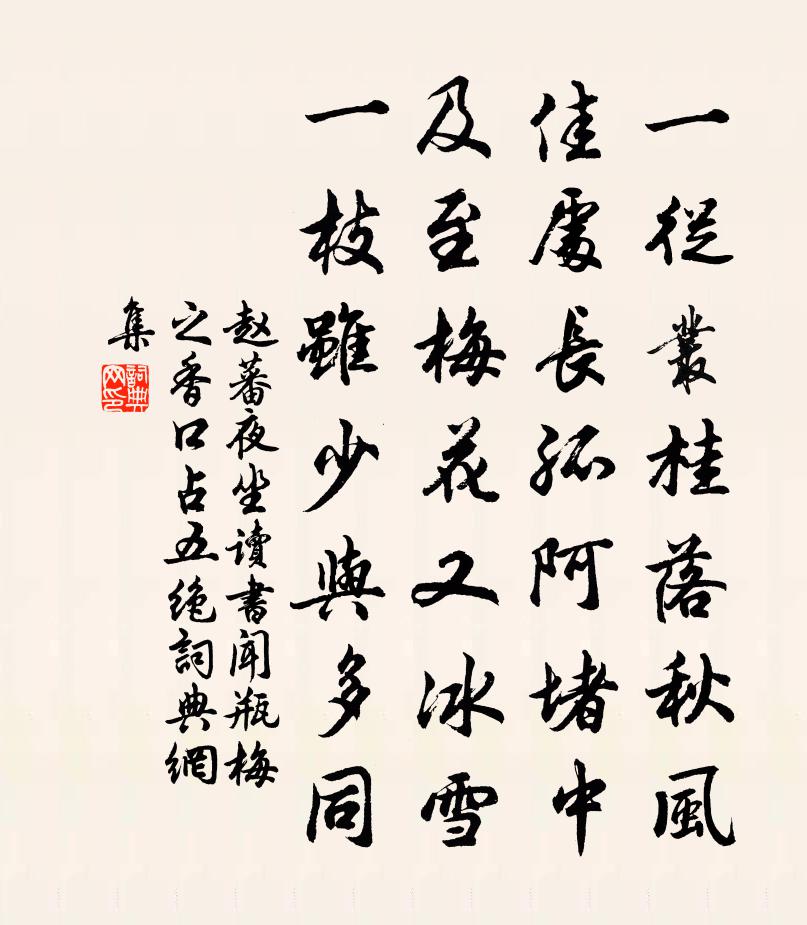 一從叢桂落秋風
佳處長孤阿堵中
及至梅花又冰雪
一枝雖少與多同
赵蕃夜坐讀書聞瓶梅
之香口占五绝詞典網
集
詞典
网印